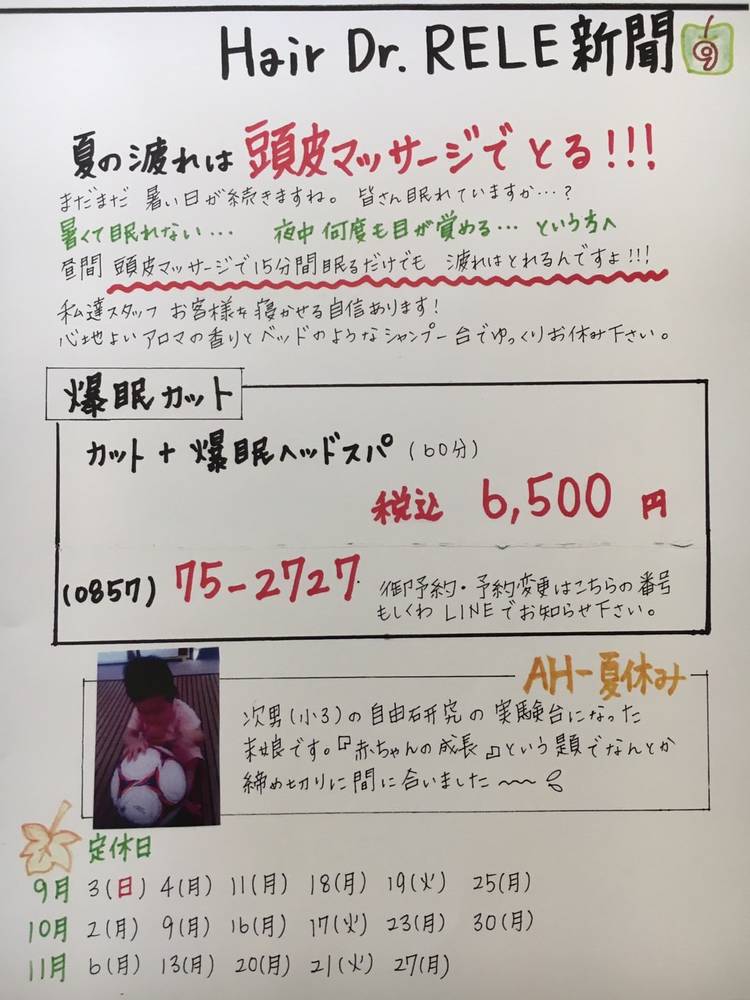 Hair Dr. RELE 新聞 ⑨
夏の疲れは 頭皮マッサージでとる!!!
まだまだ 暑い日が続きますね。 皆さん眠れていますか…?
暑くて眠れない… 夜中 何度も目が覚める… という方へ
昼間 頭皮マッサージで15分間眠るだけでも 疲れはとれるんですよ!!!
私達スタッフ お客様を寝かせる自信あります!
心地よいアロマの香りとベッドのようなシャンプー台でゆっくりお休み下さい。
爆眠カット
カット + 爆眠ヘッドスパ (60分)
税込 6,500 円
(0857) 75-2727
御予約・予約変更はこちらの番号
もしくわ LINEでお知らせ下さい。
AH-夏休み
次男(小3)の自由研究の実験台になった
末娘です。『赤ちゃんの成長』という題でなんとか
締め切りに間に合いました〜〜
定休日
9月 3(日) 4(月) 11(月) 18(月) 19(火) 25(月)
10月 2(月) 9(月) 16(月) 17(火) 23(月) 30(月)
11月 6(月) 13(月) 20(月) 21(火) 27(月)